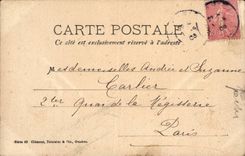 CARTE POSTALE
Ce côté est exclusivement réservé à l'adresse
Mesdemoiselles Andrée et Suzanne
Carlier
2ter Quai de la Mégisserie
Paris